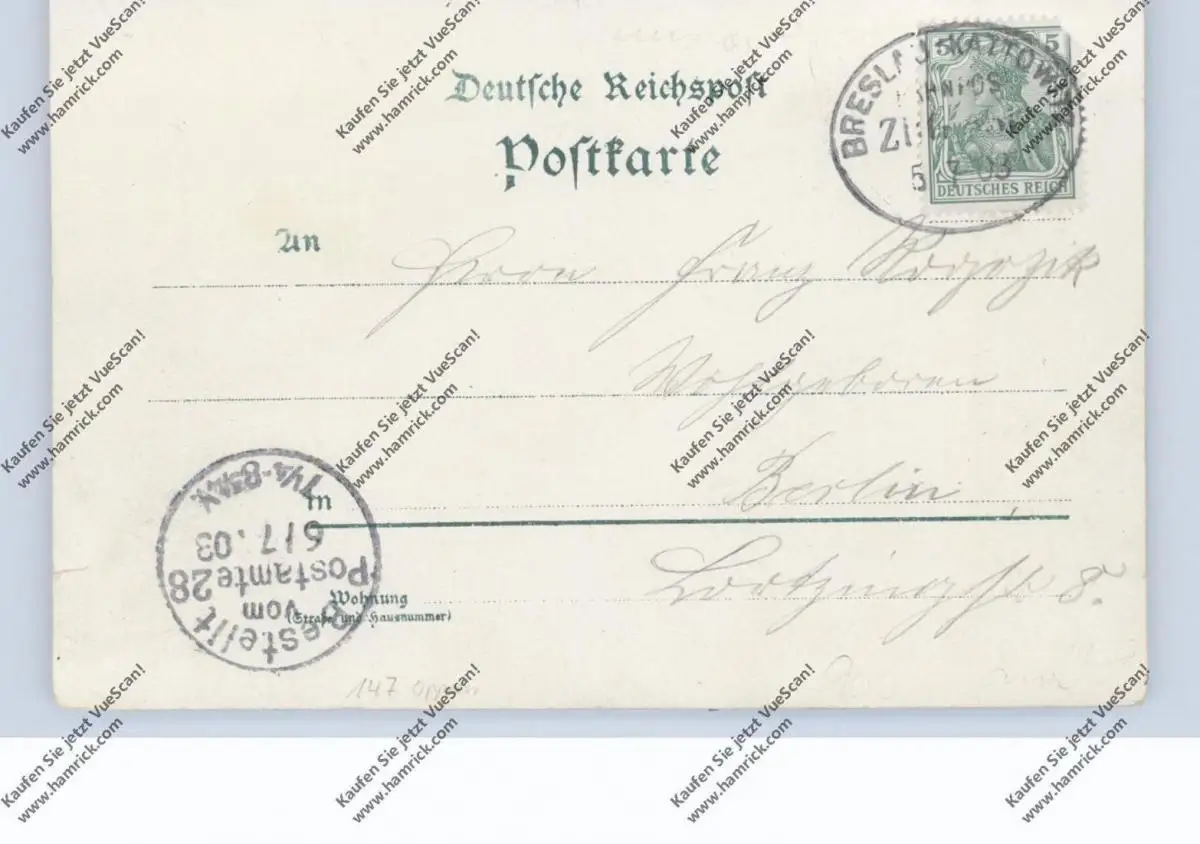 Deutsche Reichspost
Postkarte
5 5
DEUTSCHES REICH
BRESLAU-KATTOW
5 7 03
An
Herrn Franz
Wohlgeboren
in Berlin
Wohnung
(Straße und Hausnummer)
Lortzingstr. 8.
Bestellt
vom
Postamte 28
6/7.03
7¼-8¾V.
147 Oppeln
Kaufen Sie jetzt VueScan!
www.hamrick.com